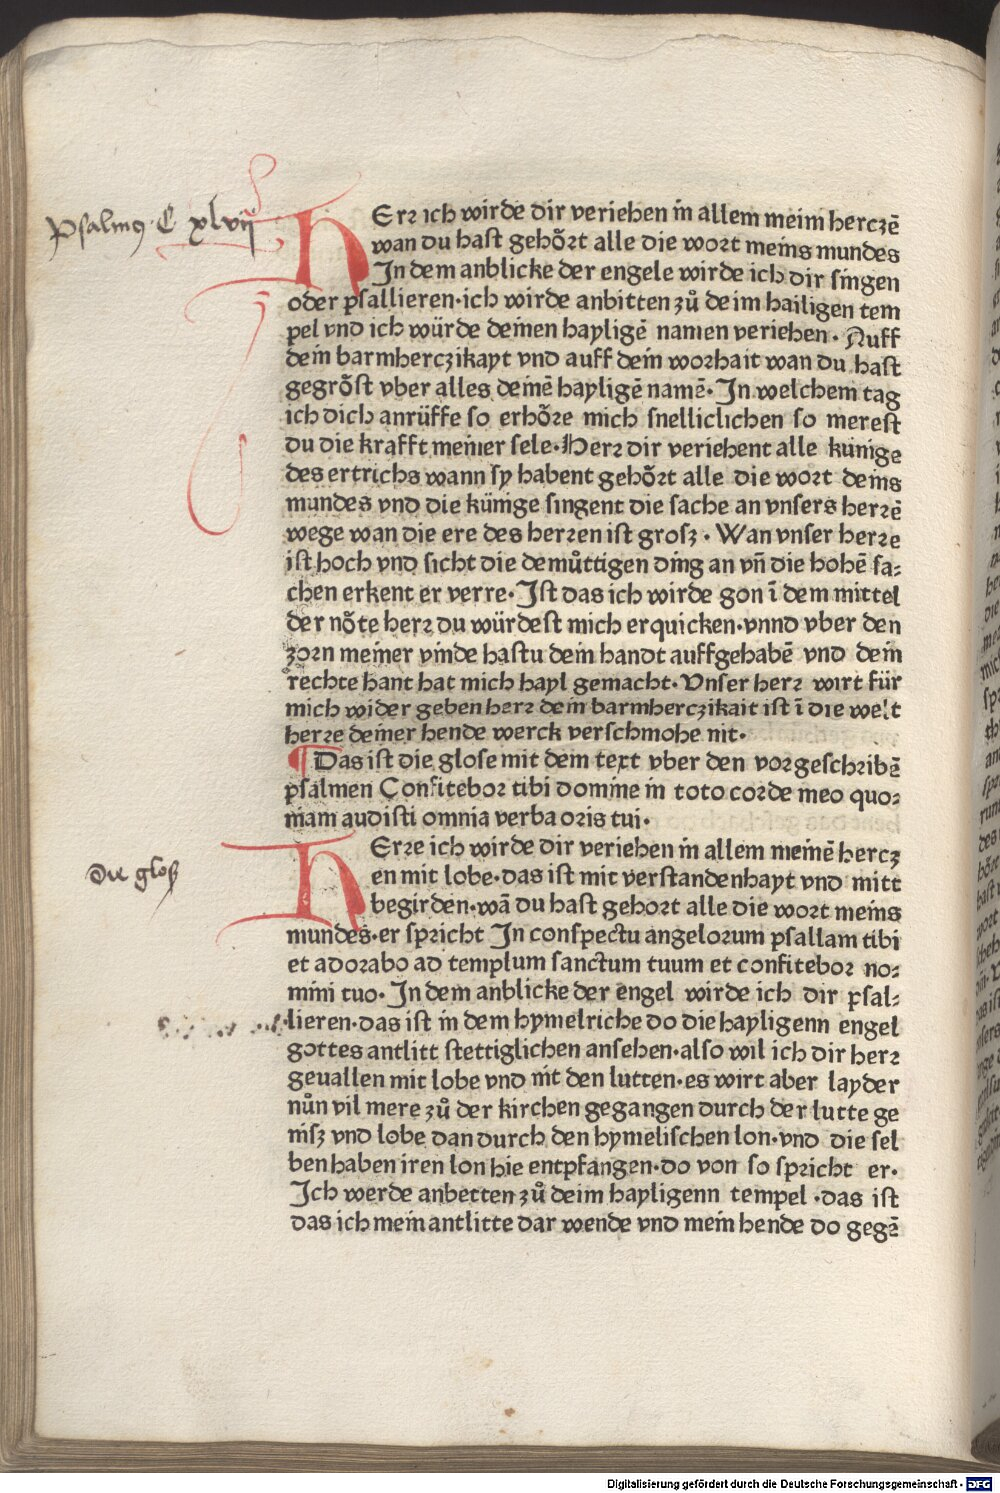 Psalmꝰ C xlvij
HErꝛ ich wirde dir veriehen in allem meim herczē
wan du hast gehoͤꝛt alle die woꝛt meins mundes
In dem anblicke der engele wirde ich dir singen
oder psallieren·ich wirde anbitten zuͦ deim hailigen tem
pel vnd ich würde deinen hayligē namen veriehen· Auff
dein barmherczikayt vnd auff dein woꝛhait wan du hast
gegroͤst vber alles deinē hayligē namē· In welchem tag
ich dich anrüffe so erhoͤꝛe mich snelliclichen so merest
du die krafft meiner sele·Herꝛ dir veriehent alle künige
des ertrichs wann sy habent gehoͤꝛt alle die woꝛt deins
mundes vnd die künige singent die sache an vnsers herꝛē
wege wan die ere des herꝛen ist grosz· Wan vnser herꝛe
ist hoch vnd sicht die demuͤttigen ding an vn̄ die hohē sa⸗
chen erkent er verre· Ist das ich wirde gon ī dem mittel
der noͤte herꝛ du würdest mich erquicken·vnnd vber den
zoꝛn meiner vinde hastu dein handt auffgehabē vnd dein
rechte hant hat mich hayl gemacht· Vnser herꝛ wirt für
mich wider geben herꝛ dein barmherczikait ist ī die welt
herꝛe deiner hende werck verschmohe nit·
¶ Das ist die glose mit dem text vber den voꝛgeschꝛibē
psalmen Confiteboꝛ tibi domine in toto coꝛde meo quo⸗
niam audisti omnia verba oꝛis tui·
Die gloß
HErꝛe ich wirde dir veriehen in allem meinē hercz
en mit lobe·das ist mit verstandenhayt vnd mitt
begirden·wā du hast gehoꝛt alle die woꝛt meins
mundes·er spꝛicht In conspectu angeloꝛum psallam tibi
et adoꝛabo ad templum sanctum tuum et confiteboꝛ no⸗
mini tuo· In dem anblicke der engel wirde ich dir psal⸗
lieren·das ist in dem hymelriche do die hayligenn engel
gottes antlitt stettiglichen ansehen·also wil ich dir herꝛ
geuallen mit lobe vnd mit den lutten·es wirt aber layder
nuͦn vil mere zuͦ der kirchen gegangen durch der lutte ge
nisz vnd lobe dan durch den hymelischen lon·vnd die sel
ben haben iren lon hie entpfangen·do von so spꝛicht er·
Ich werde anbetten zuͦ deim hayligenn tempel ·das ist
das ich mein antlitte dar wende vnd mein hende do gegē
Digitalisierung gefördert durch die Deutsche Forschungsgemeinschaft - DFG